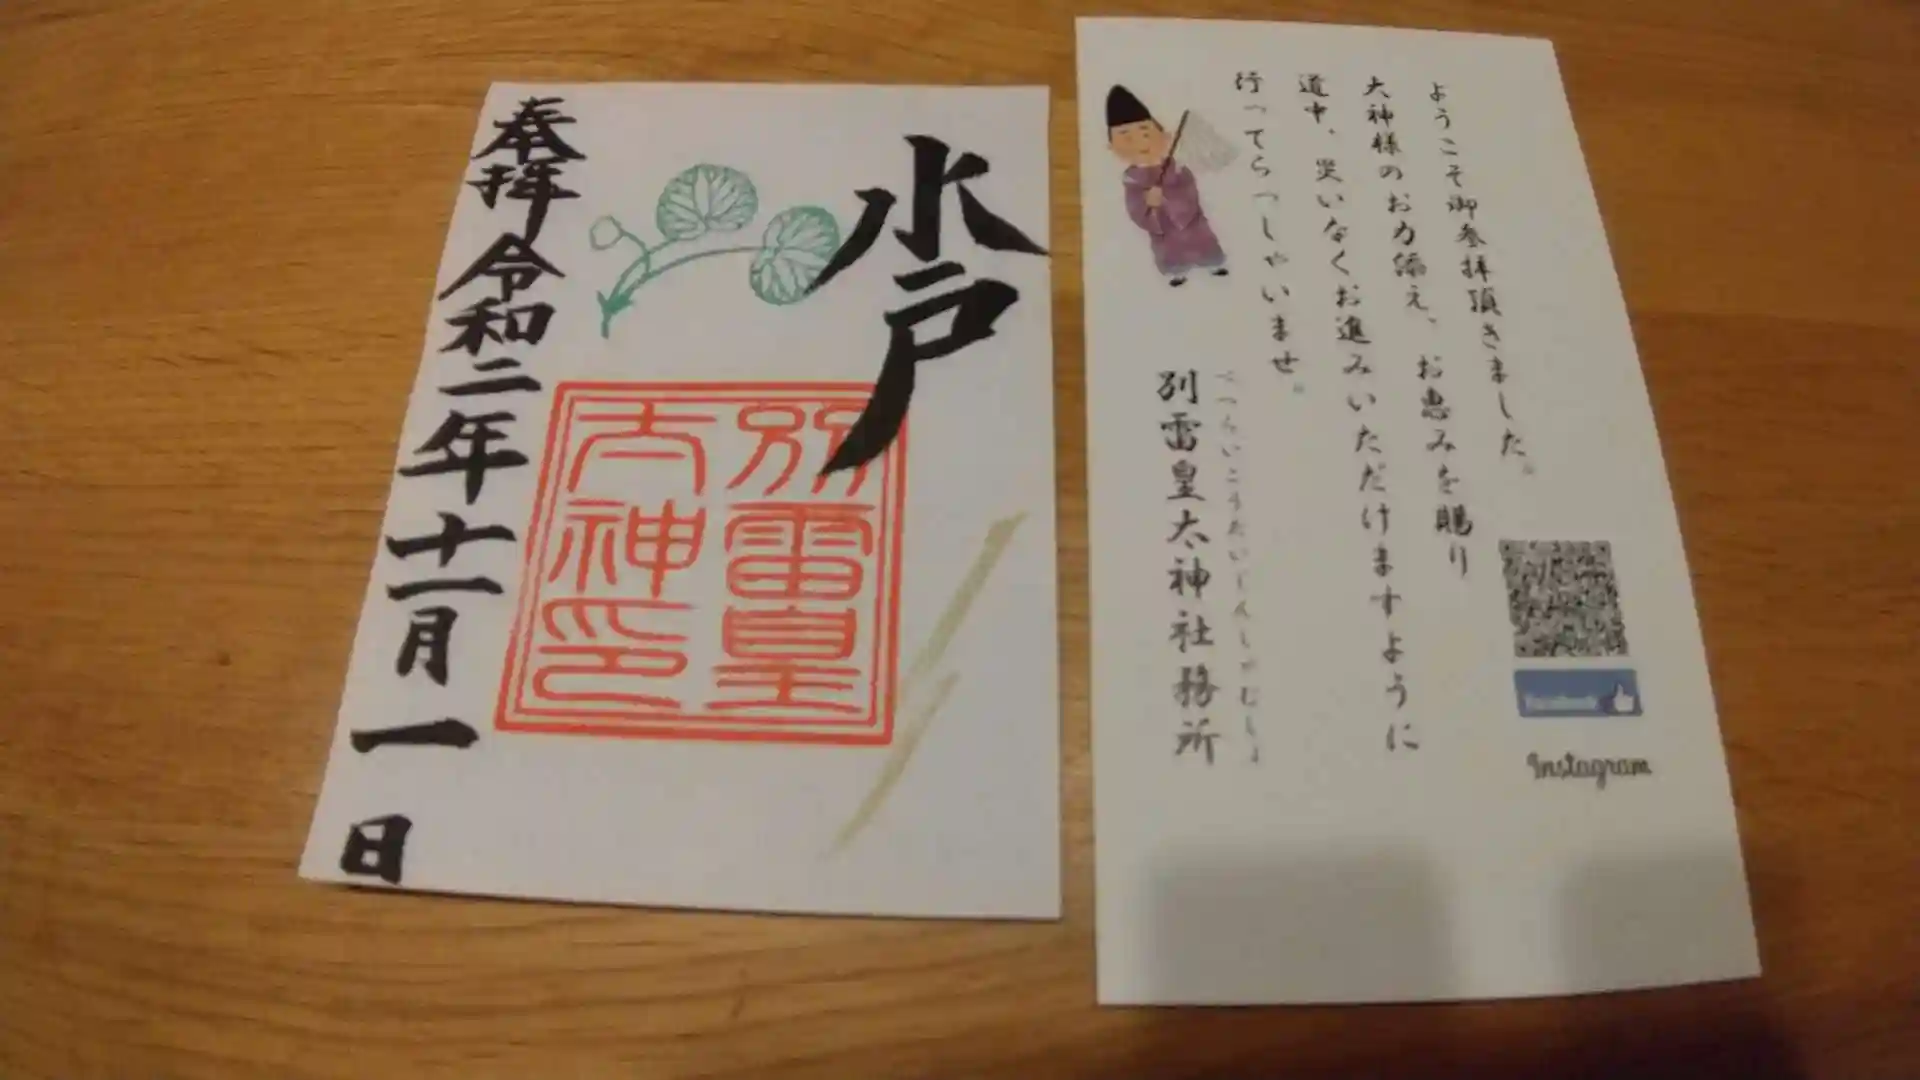 水戸
別雷皇
太神印
奉拝 令和二年十一月一日
ようこそ御参拝頂きました。
大神様のお力添え、お恵みを賜り
道中、災いなくお進みいただけますように
行ってらっしゃいませ。
べつらいこうたいじんしゃむしょ
別雷皇太神社務所
Facebook
Instagram